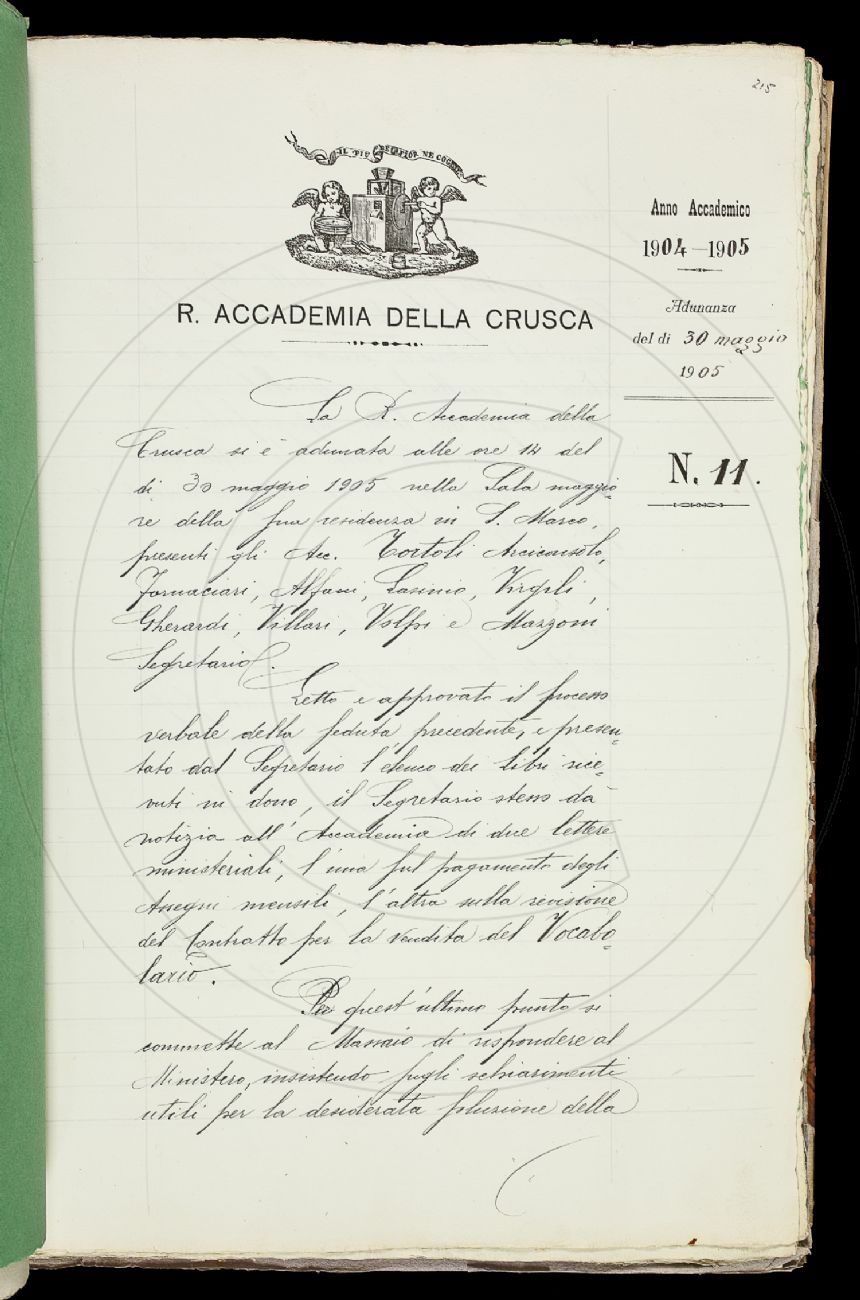 215
IL PIÙ BEL FIOR NE COGLIE
Anno Accademico
1904-1905
Adunanza
del dì 30 maggio
1905
R. ACCADEMIA DELLA CRUSCA
N. 11.
La R. Accademia della
Crusca si è adunata alle ore 14 del
dì 30 maggio 1905 nella Sala maggio-
re della sua residenza in S. Marco,
presenti gli Acc. Tortoli Arciconsolo,
Fornaciari, Alfani, Lasinio, Virgili,
Gherardi, Villari, Volpi e Mazzoni
Segretario.
Letto e approvato il processo
verbale della seduta precedente, e presen-
tato dal Segretario l'elenco dei libri rice-
vuti in dono, il Segretario stesso dà
notizia all'Accademia di due lettere
ministeriali, l'una sul pagamento degli
Assegni mensili, l'altra sulla revisione
del Contratto per la vendita del Vocabo-
lario.
Per quest'ultimo punto si
commette al Massaio di rispondere al
Ministero, insistendo sugli schiarimenti
utili per la desiderata soluzione della